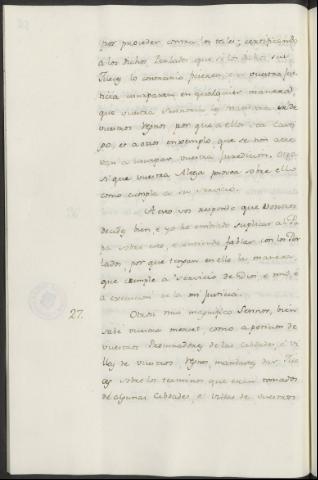 por proceder contra los tales; certificando
à los dichos Perlados que si los dichos sus
Jueces lo contrario ficieren, è en vuestra jus-
ticia usurparen en qualquier manera
que vuestra Señoria les mandara
vuestros Regnos por que à ellos sea casti-
go, et à otros enxemplo, que se non atre-
van à usurpar vuestra juredicion,
si que vuestra Alteza provea sobre ello
como cumple à su servicio.
A esto vos respondo que Vosotros
decides bien, è yo he embiado suplicar al Pa-
pa sobre esto, è entiendo fablar con los Per-
lados, por que tengan en ello la manera,
que cumple à servicio de Dios, è mio, è
à execucion de la mi justicia.
27. Otrosi mui magnifico Señor, bien
sabe vuestra merced como à peticion de
vuestros Procuradores de las Cibdades, è Vi-
llas de vuestros Regnos, mandastes dar Jue-
ces sobre los terminos que eran tomados
de algunas Cibdades, è Villas de vuestros